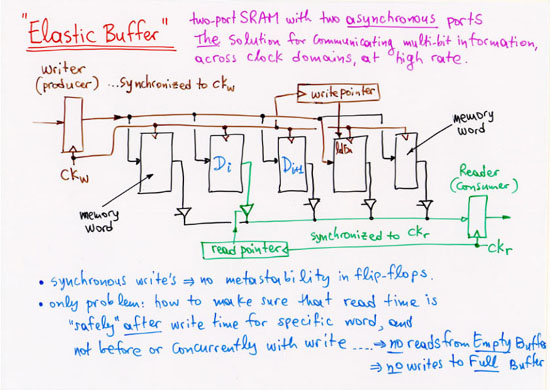 "Elastic Buffer"
two-port SRAM with two asynchronous ports
The solution for communicating multi-bit information,
across clock domains, at high rate.
writer
(producer) ...synchronized to ckw
write pointer
memory
word
Di
Di+1
ldEn
ckw
memory
word
Reader
(consumer)
read pointer
synchronized to ckr
ckr
• synchronous write's ⇒ no metastability in flip-flops.
• only problem: how to make sure that read time is
"safely" after write time for specific word, and
not before or concurrently with write .... ⇒ no reads from Empty Buffer
⇒ no writes to Full Buffer